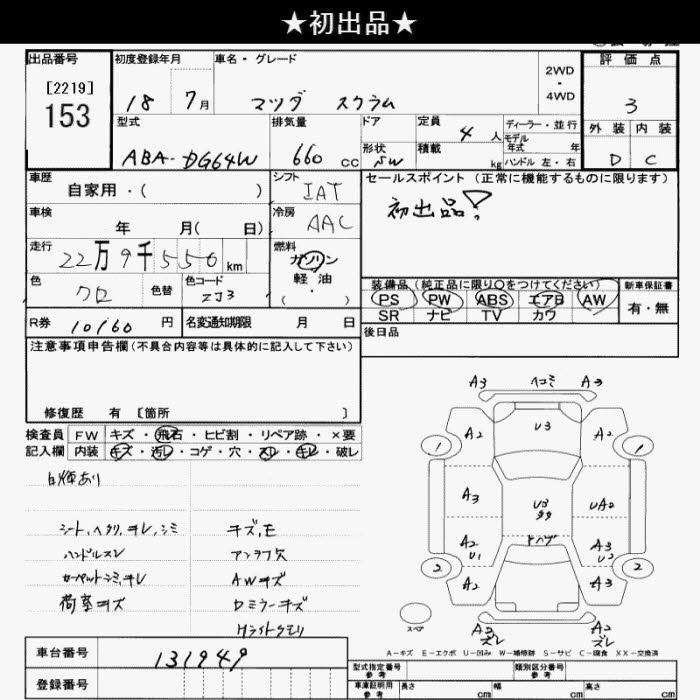 ★初出品★
出品番号 初度登録年月 車名・グレード 2WD ・ 4WD 評価点
[2219]
153
18 7月 マツダ スクラム 3
型式 排気量 ドア 定員 4人 ディーラー・並行 外装 内装
モデル年式 年
ABA-DG64W 660cc 形状 SW 積載 kg ハンドル 左・右 D C
車歴 自家用・( ) シフト IAT セールスポイント (正常に機能するものに限ります)
初出品!
車検 年 月( 日) 冷房 AAC
走行 22万9千550km 燃料 ガソリン・軽油 ( ・ )
色 クロ 色替 色コード ZJ3
装備品(純正品に限り〇をつけてください) 新車保証書
PS PW ABS エアB AW 有・無
SR ナビ TV カワ
R券 10160円 名変通知期限 月 日
後日品
注意事項申告欄(不具合内容等は具体的に記入して下さい)
修復歴 有 [箇所 ]
検査員 FW キズ・飛石・ヒビ割・リペア跡・×要
記入欄 内装 キズ・汚レ・コゲ・穴・スレ・キレ・破レ
シート,ヘタリ,キレ,シミ キズ,E
ハンドルスレ アンテナ欠
カーペットシミ,キレ AWキズ
荷室キズ Dミラーキズ
Hライトクモリ
A3 ヘコミ A3
A2 U3 A2
1 1
A3 U3 UA2
A2 U1 A3 U2
2 2
A2 A3
スペア
A3 ズレ A2 ズレ
A-キズ E-エクボ U-凹み W-補修跡 S-サビ C-腐食 XX-交換済
車台番号 131949
登録番号
型式指定番号 参考 類別区分番号 参考
車庫証明用 参考 長さ cm 幅 cm 高さ cm